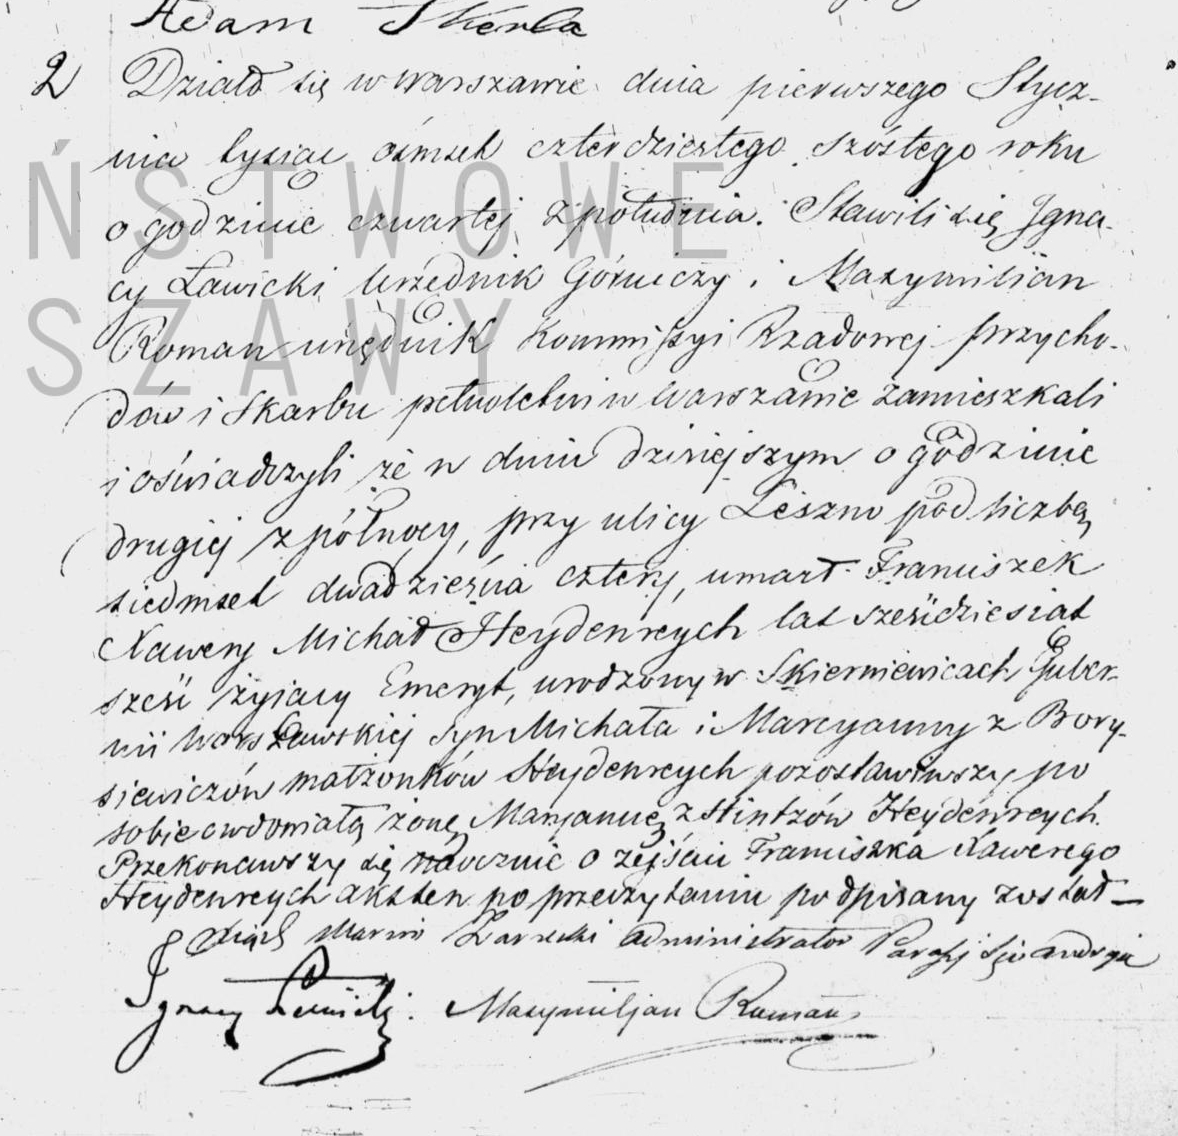 Adam Skerla
2 Działo się w Warszawie dnia pierwszego Stycz-
nia tysiąc ośmset czterdziestego szóstego roku
o godzinie czwartej z południa. Stawili się Igna-
cy Ławicki Urzędnik Górniczy i Maxymilian
Roman urzędnik Kommissyi Rządowej przycho-
dów i Skarbu pełnoletni w Warszawie zamieszkali
i oświadczyli że w dniu dzisiejszym o godzinie
drugiej z północy, przy ulicy Leszno pod liczbą
siedmset dwadzieścia cztery, umarł Franciszek
Xawery Michał Heydenreych lat sześćdziesiąt
sześć żyjący Emeryt, urodzony w Skierniewicach Guber-
nii Warszawskiej syn Michała i Marcyanny z Bory-
siewiczów małżonków Heydenreych pozostawiwszy po
sobie owdowiałą żonę Maryannę z Hintzów Heydenreych.
Przekonawszy się naocznie o zejściu Franciszka Xawerego
Heydenreych akt ten po przeczytaniu podpisany został —
Xiądz Administrator Parafij Sgo Andrzeja
Ignacy Ławicki. Maxymiljan Roman
ŃSTWOWE
SZAWY